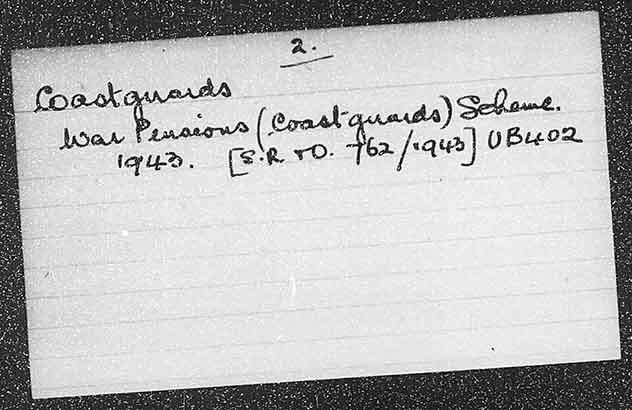 2.
Coastguards
War Pensions (Coastguards) Scheme.
1943. [S.R & O. 762/1943] UB402